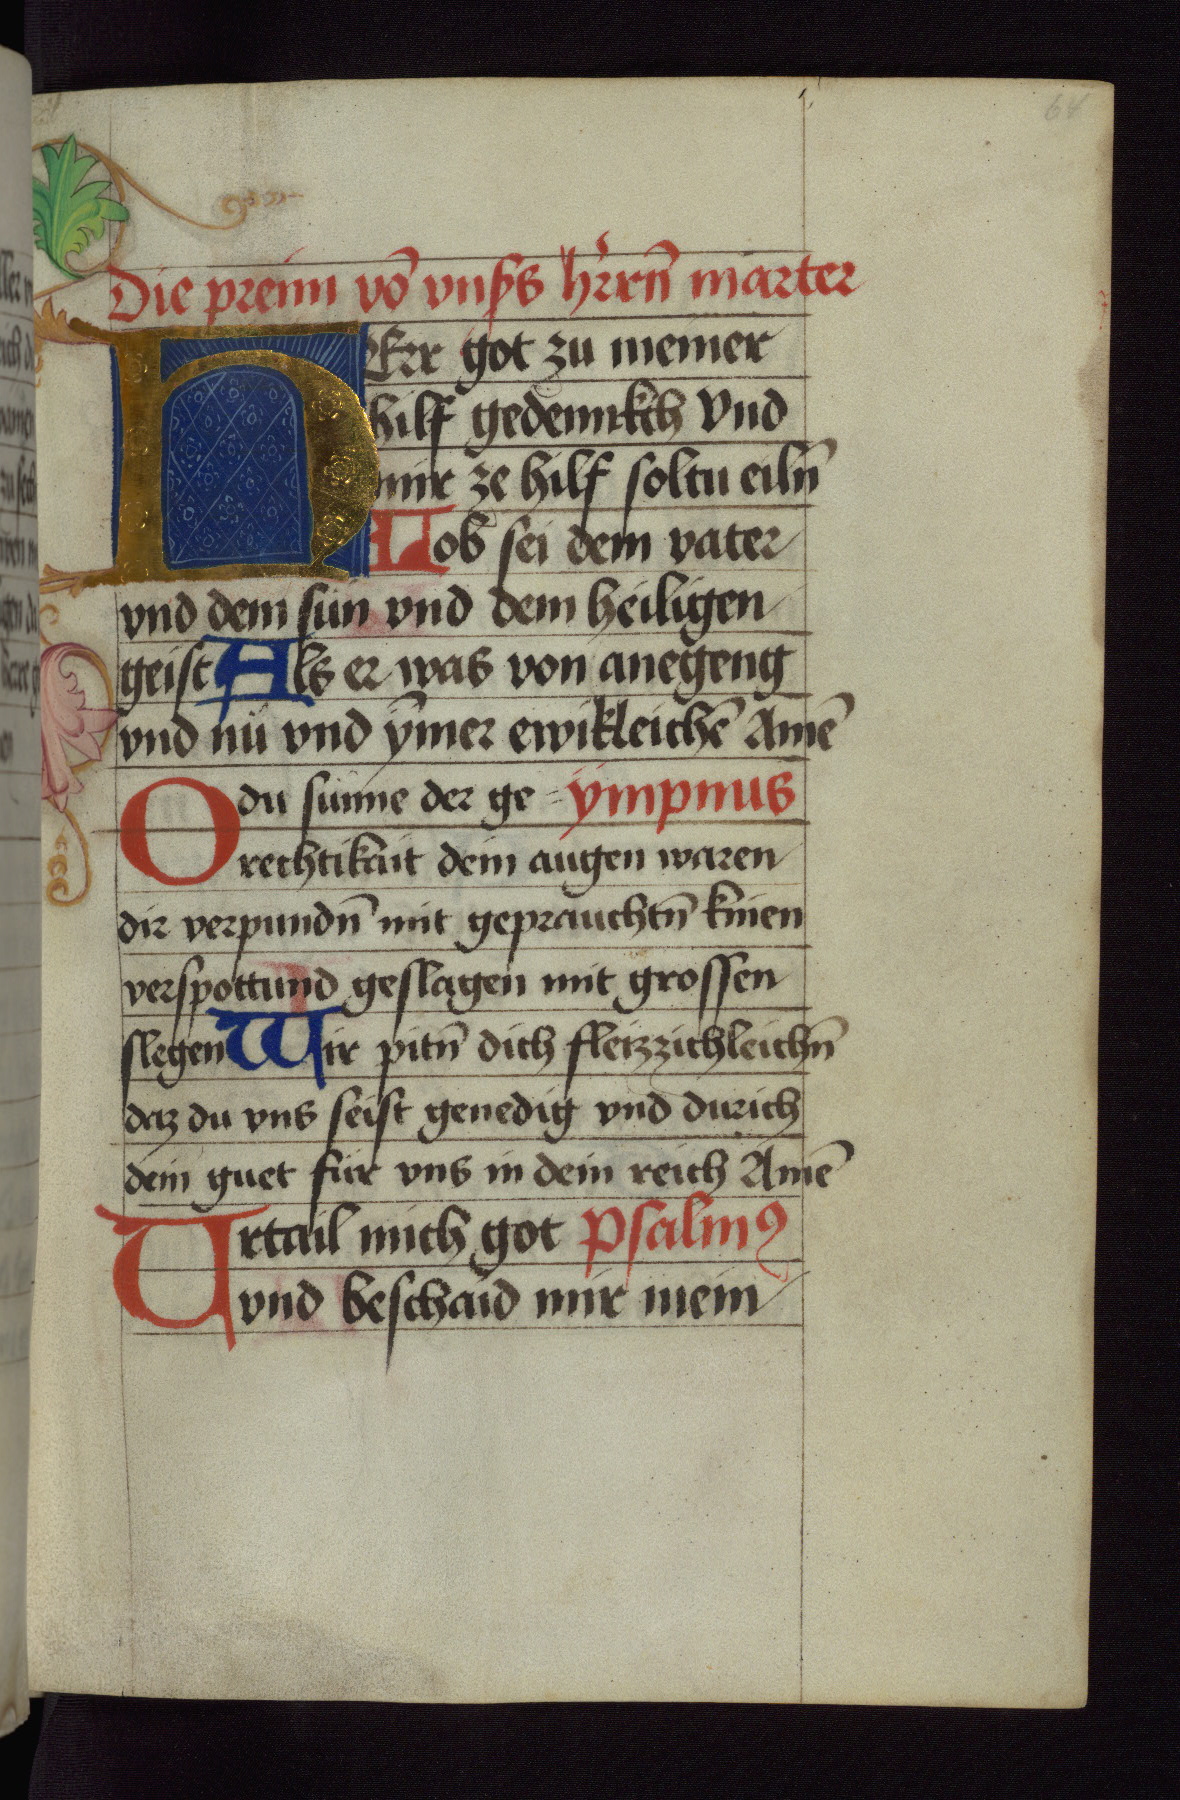 64
Die preim vō vnßs hr̄ren̄ marter
HErr got zu meiner
hilf gedennkch Vnd
mir ze hilf soltu eiln̄
Lob sei dem vater
vnd dem sün vnd dem heiligen
geist Als er was von anegeng
vnd nü vnd ÿm̄er ewikleichē Amē
O du sunne der ge= ÿmpnus
rechtikait dein augen waren
dir verpundn̄ mit geprauchtn̄ knien
verspottund geslagen mit grossen
slegen Wir pitn̄ dich fleizzichleichn̄
daz du vns seist genedig vnd durich
dein guet für vns in dein reich Amē
Urtail mich got Psalmꝰ
vnd beschaid mir mein